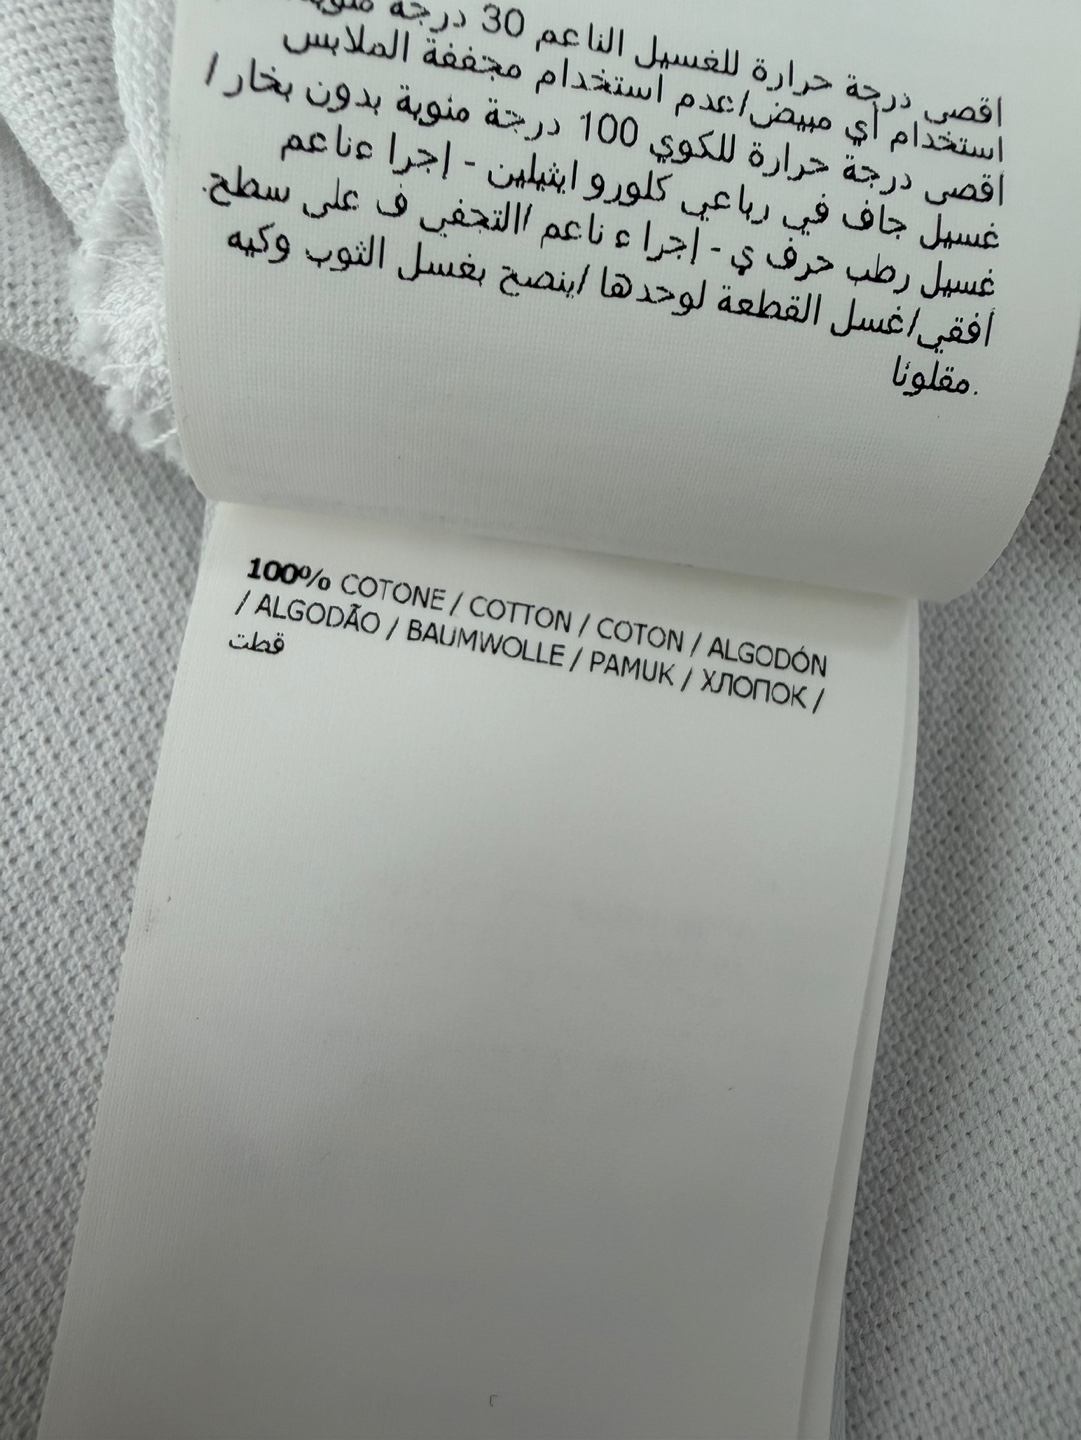 أقصى درجة حرارة للغسيل الناعم 30 درجة مئوية
استخدام أي مبيض/عدم استخدام مجففة الملابس
أقصى درجة حرارة للكوي 100 درجة مئوية بدون بخار /
غسيل جاف في رباعي كلورو ايثيلين - إجرا ءناعم
غسيل رطب حرف ي - إجرا ء ناعم /التجفي ف على سطح.
أفقي/غسل القطعة لوحدها /ينصح بغسل الثوب وكيه
.مقلوبًا
100% COTONE / COTTON / COTON / ALGODÓN
/ ALGODÃO / BAUMWOLLE / PAMUK / ХЛОПОК /
قطن